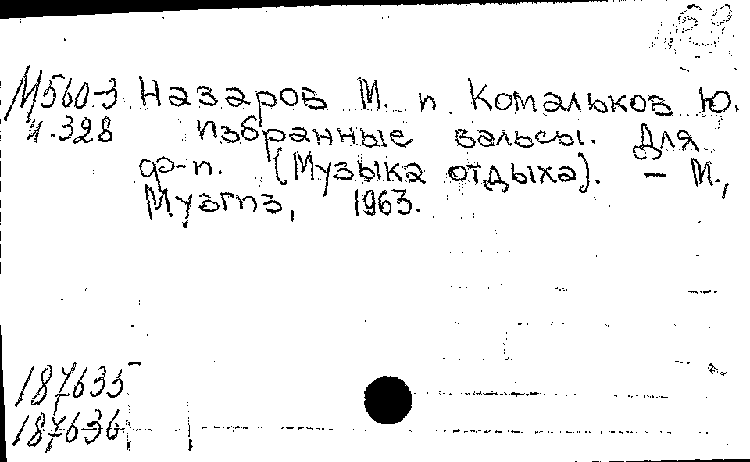 М560-3 Назаров М. и Комальков Ю.
и.328 Избранные вальсы. Для
ф-п. (Музыка отдыха). — М.,
Музгиз, 1963.
187635
187636